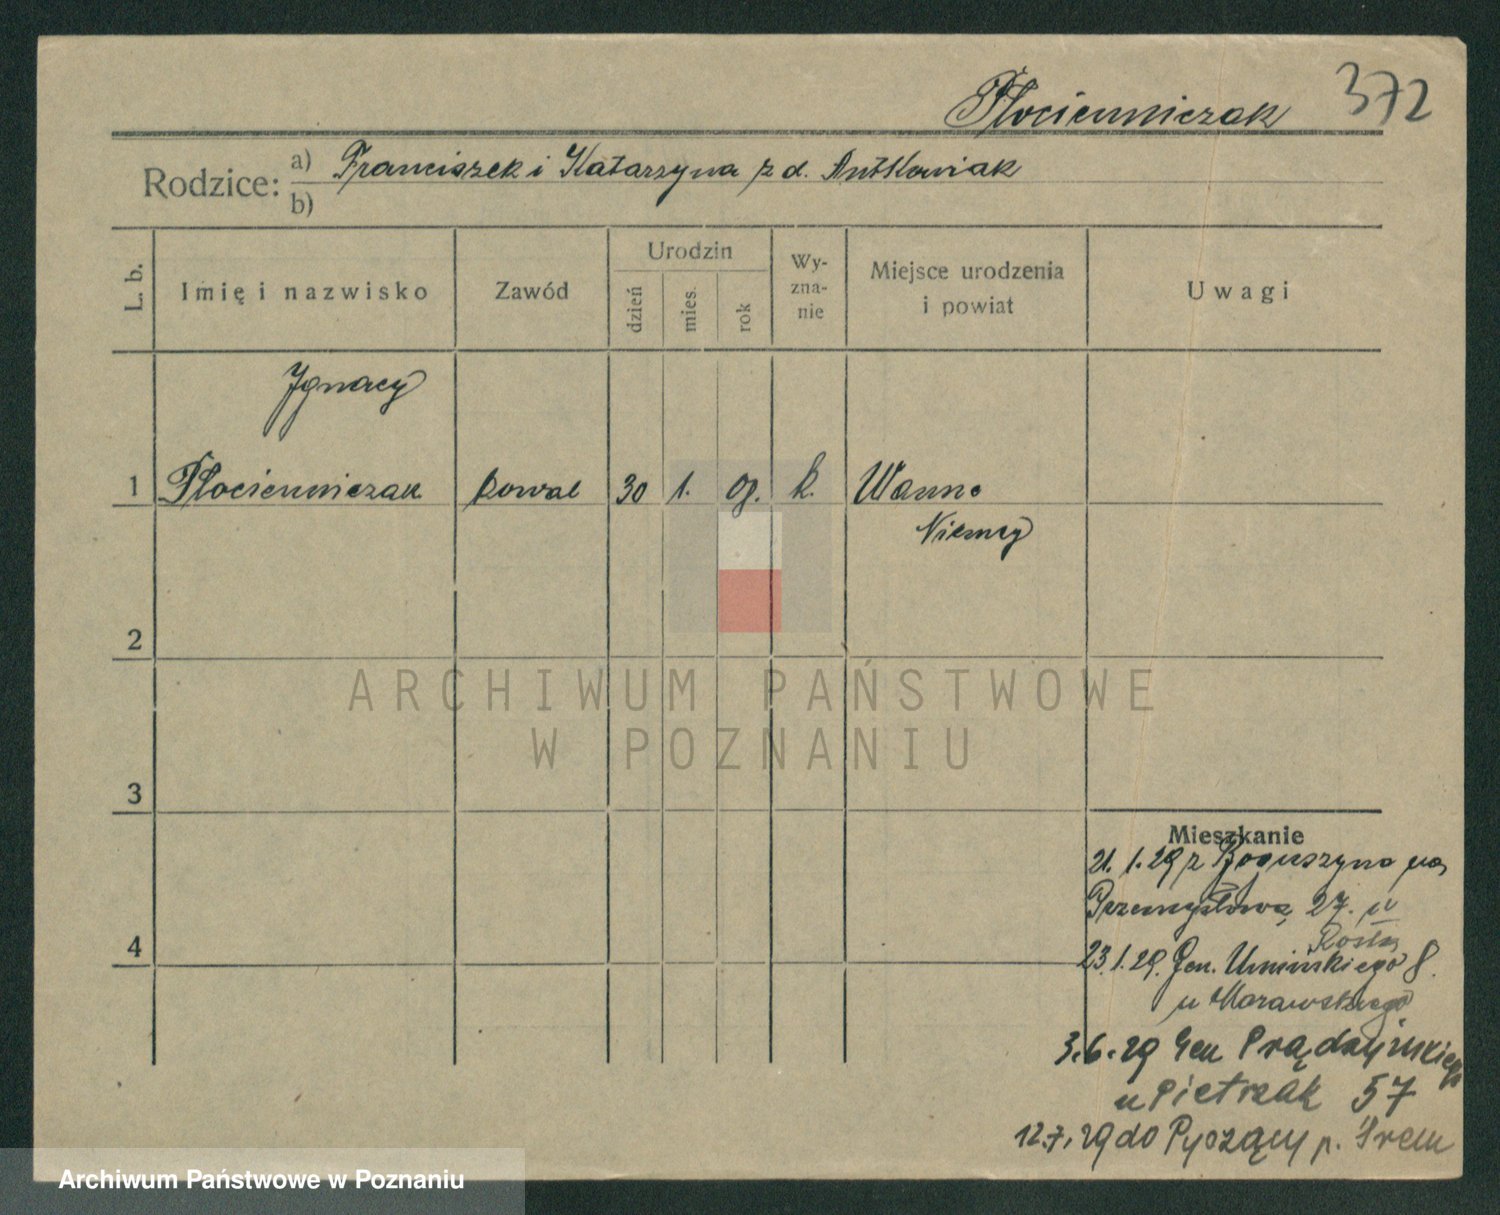 372
Płocienniczak
Rodzice: a) Franciszek i Katarzyna z d. Antkowiak
b)
L. b.
Imię i nazwisko
Zawód
Urodzin
dzień
mies.
rok
Wy-
zna-
nie
Miejsce urodzenia
i powiat
Uwagi
Ignacy
1 Płocienniczak kowal 30 1. 09. k. Wanne
Niemcy
2
ARCHIWUM PAŃSTWOWE
W POZNANIU
3
Mieszkanie
21. 1. 29 z Boguszyna na
Przemysłową 27. u
4
23.1.29. Gen. Umińskiego 8.
u Morawskiego
3.6.29 Gen Prądzyńskiego
u Pietrzak 57
12.7.29 do Pyszący p. Śrem
Archiwum Państwowe w Poznaniu